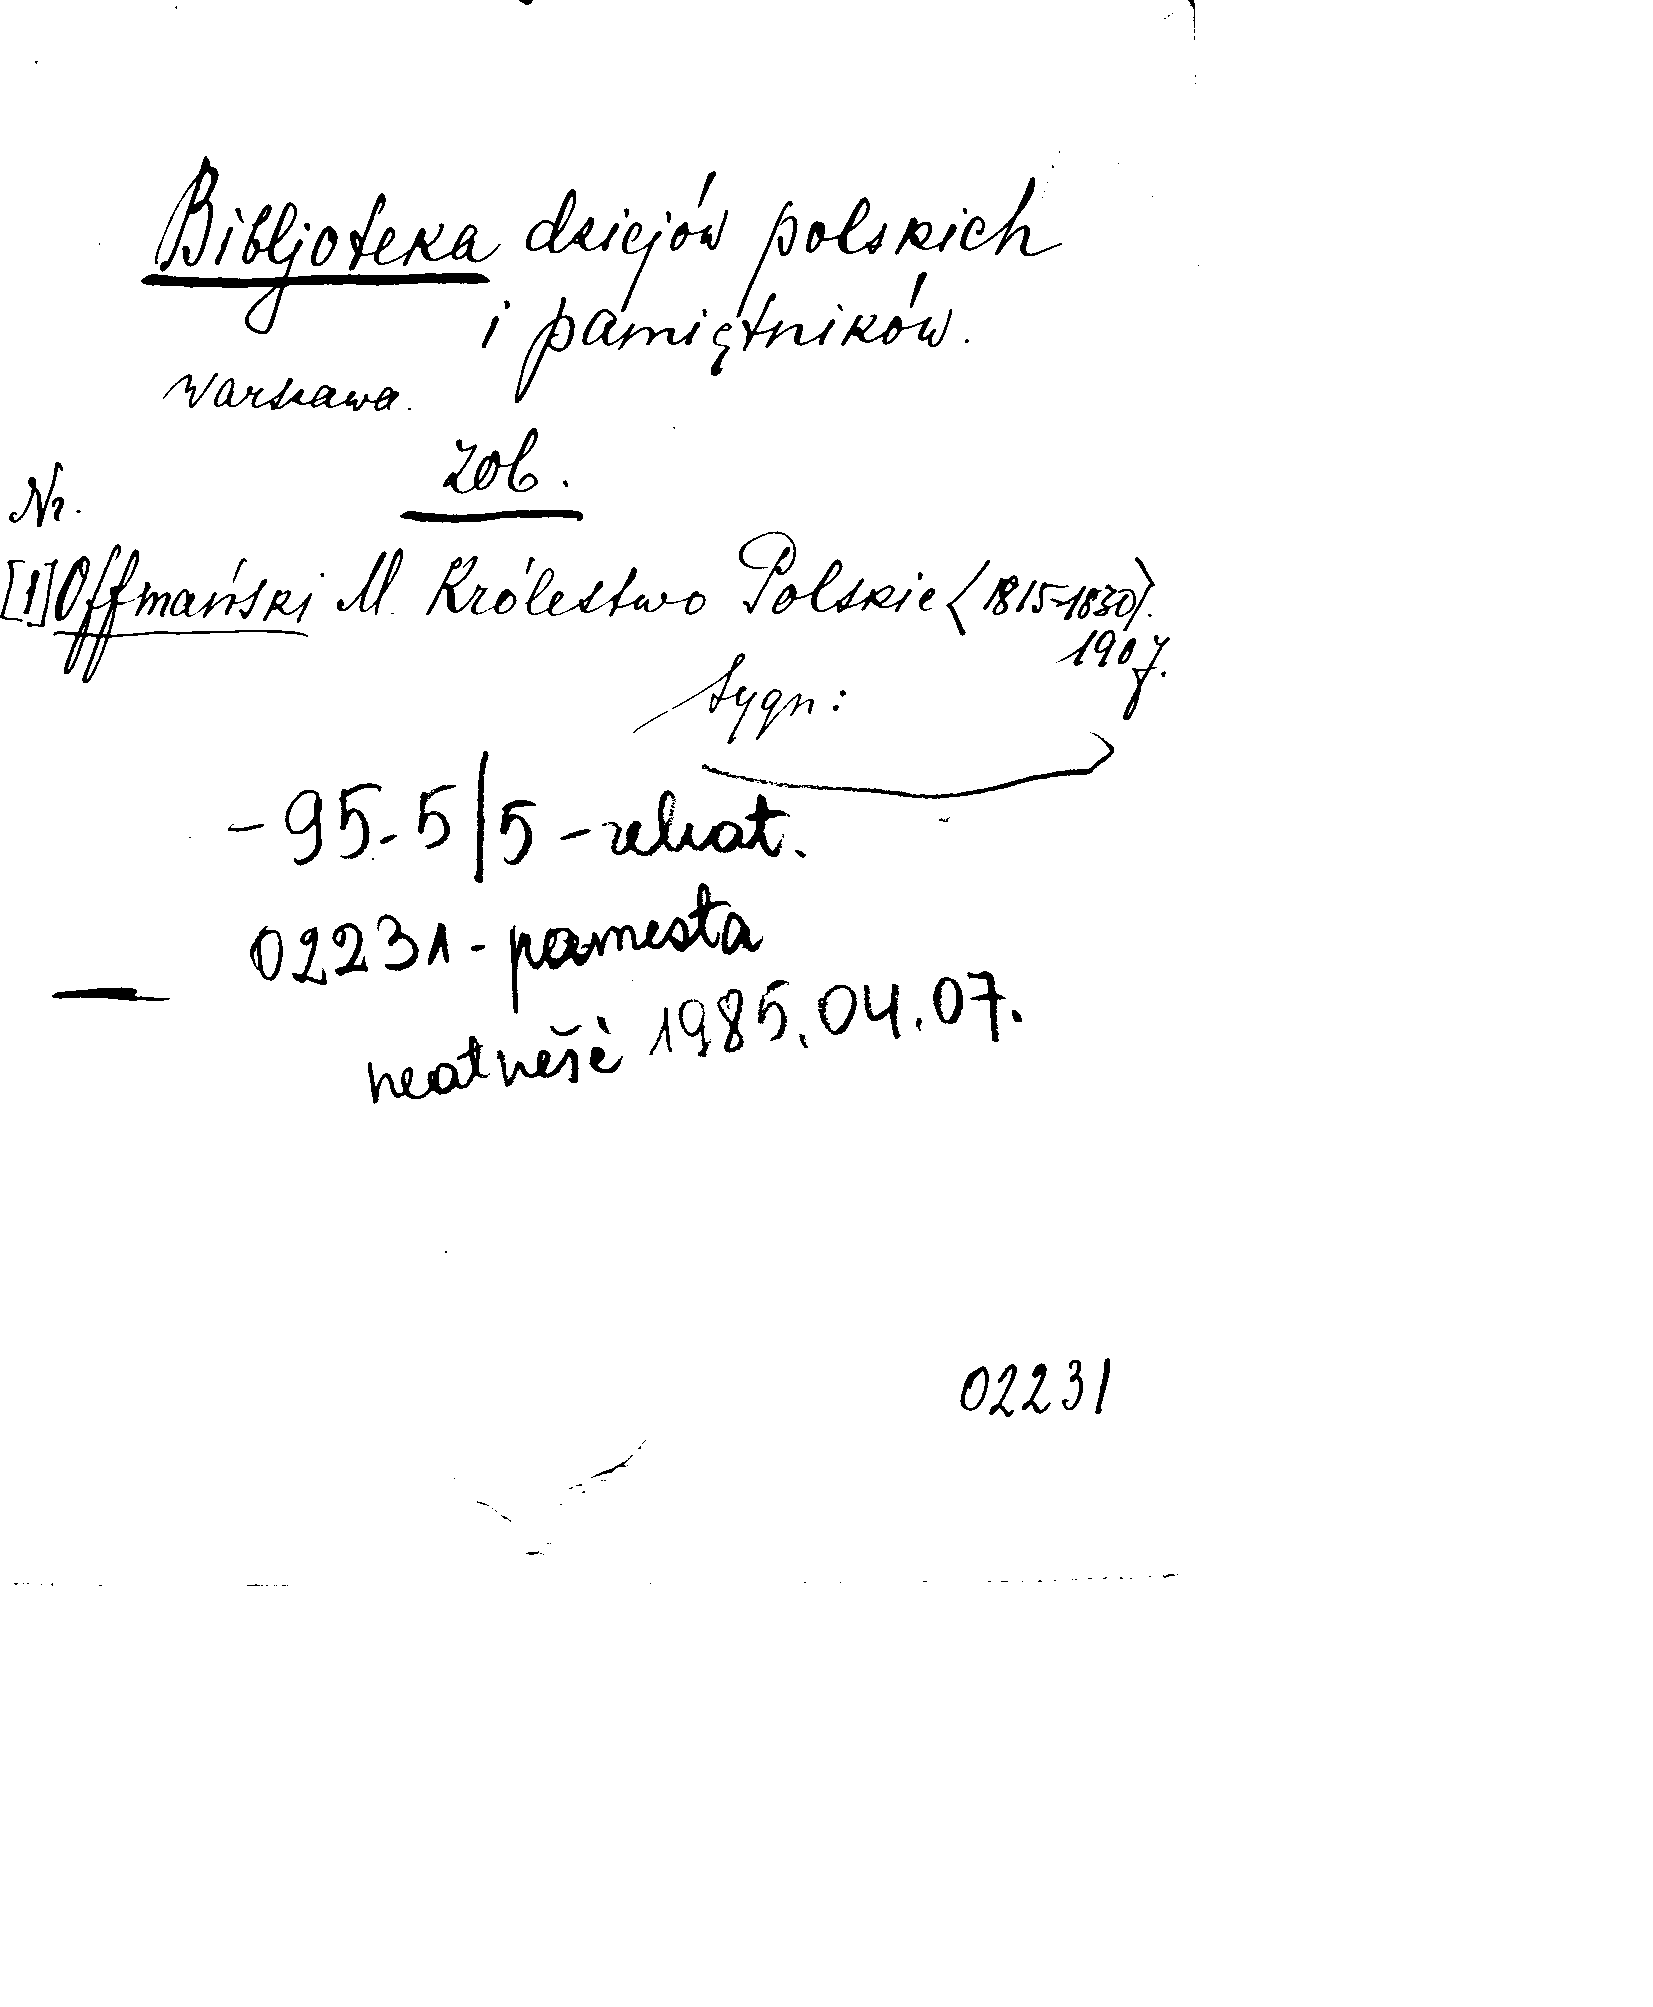 Bibljoteka dziejów polskich
i pamiętników.
Warszawa.
Zob.
Nr.
[1] Offmański M. Królestwo Polskie <1815-1830>.
1907.
Sygn:
- 95-5/5 -
02231 -
1985.04.07.
02231